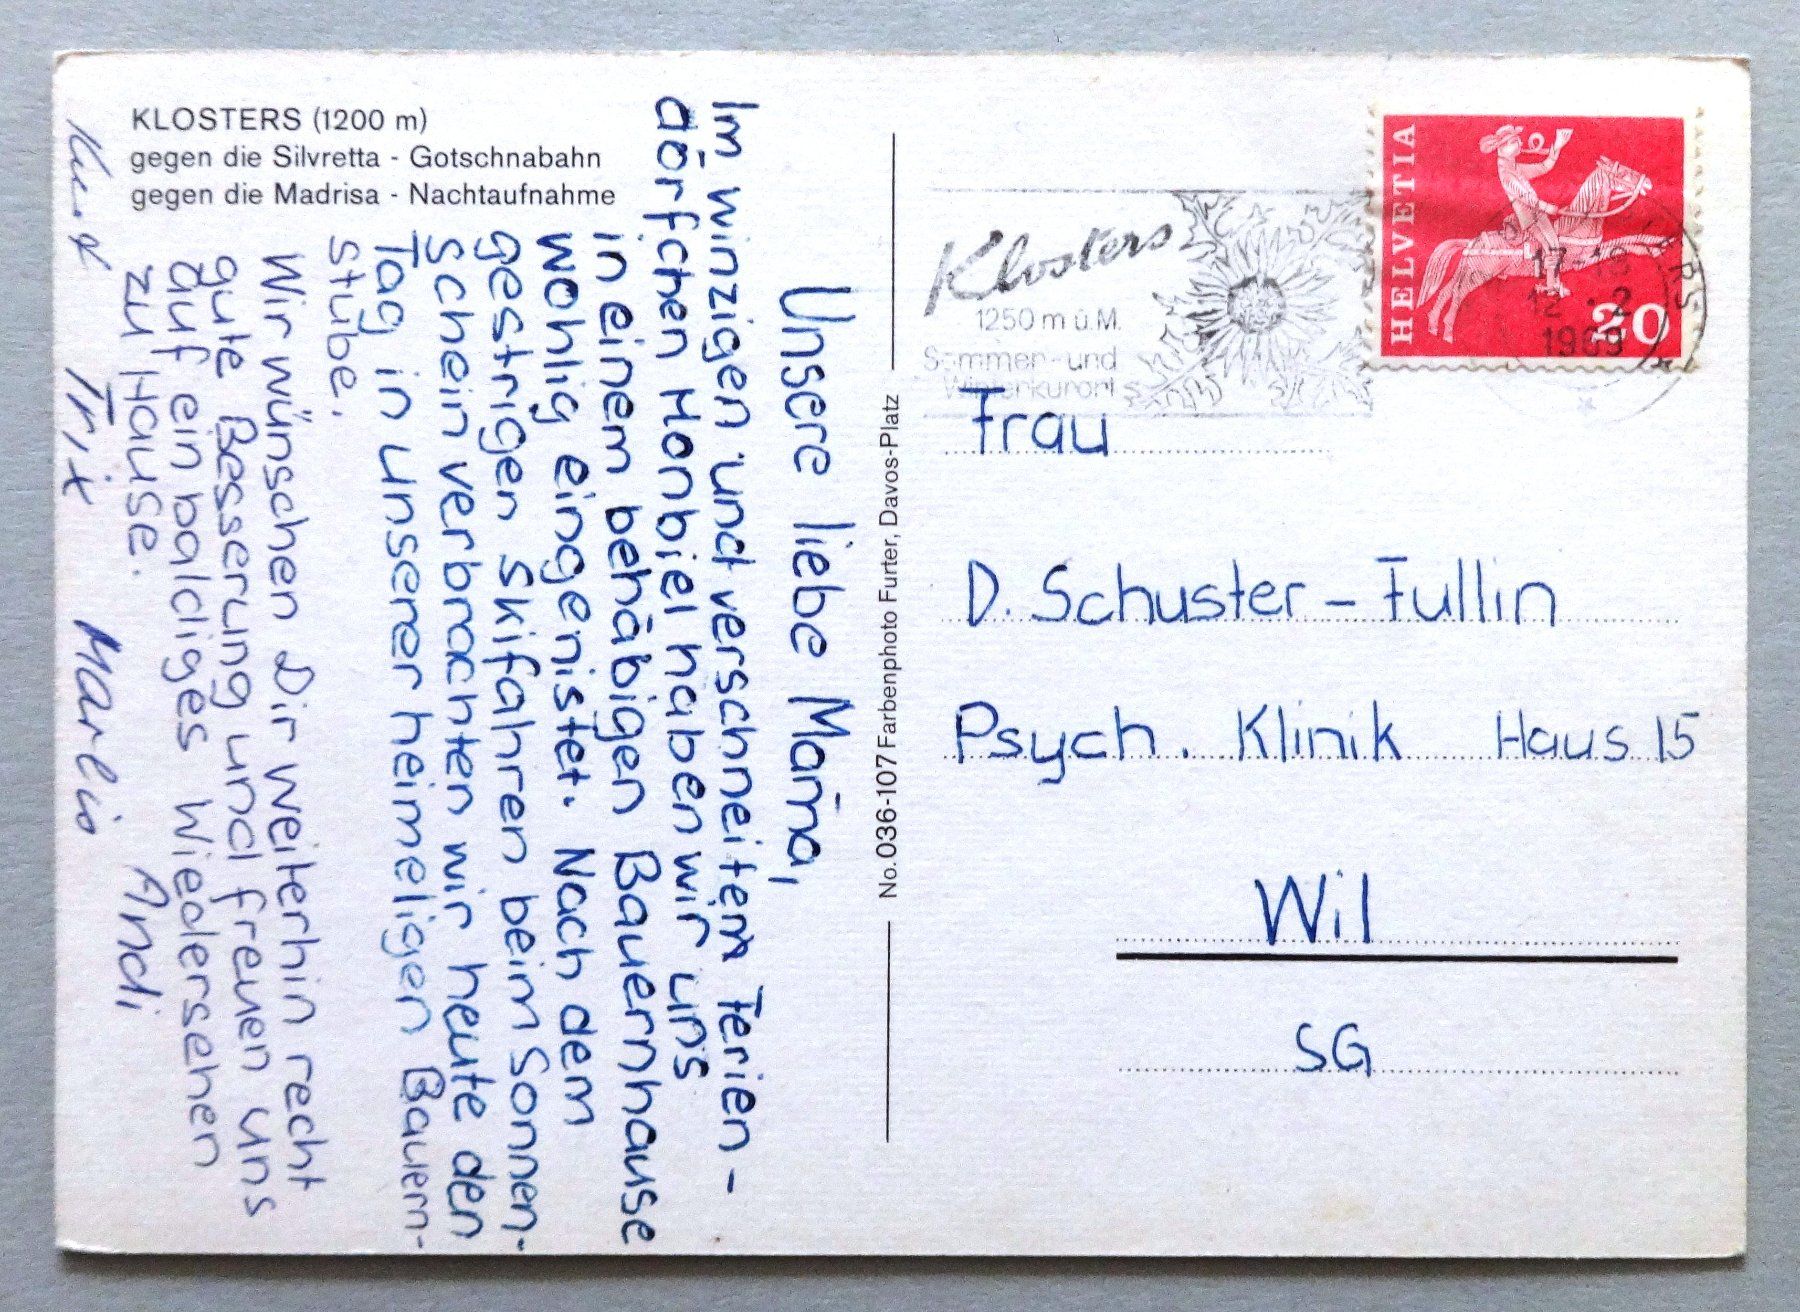 KLOSTERS (1200 m)
gegen die Silvretta - Gotschnabahn
gegen die Madrisa - Nachtaufnahme
Unsere liebe Mama,
Im winzigen und verschneitem Ferien-
dörfchen Monbiel haben wir uns
in einem behäbigen Bauernhause
wohlig eingenistet. Nach dem
gestrigen Skifahren beim Sonnen-
schein verbrachten wir heute den
Tag in unserer heimeligen Bauern-
stube.
Wir wünschen Dir weiterhin recht
gute Besserung und freuen uns
auf ein baldiges Wiedersehen
zu Hause.
Andi
Trix Marlis
No. 036-107 Farbenphoto Furter, Davos-Platz
Klosters
1250 m ü. M.
Sommer- und
Winterkurort
HELVETIA
20
17-18
12. 2
1969
Frau
D. Schuster - Fullin
Psych. Klinik Haus 15
Wil
SG